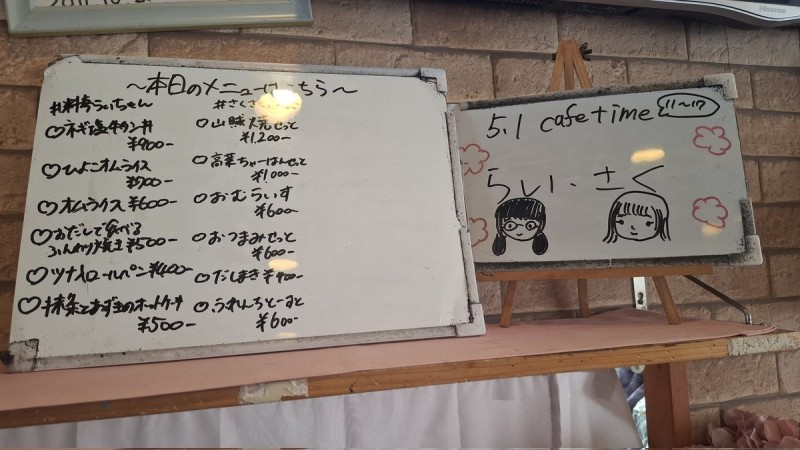 Hisense
～本日のメニューはこちら～
#料持らいちゃん
♡ネギ塩牛タン丼
¥900-
♡ひよこオムライス
¥700-
♡オムライス ¥600-
♡おだしで食べる
ふんわり焼き ¥500-
♡ツナ ロールパン ¥400-
♡抹茶とあずきのホットケーキ
¥500-
#さくさ
○山賊焼せっと
¥1,200-
○高菜ちゃーはんせっと
¥1,000-
○おむらいす
¥600-
○おつまみせっと
¥600-
○だしまき ¥400-
○ふれんちとーすと
¥600-
5.1 cafe time 11～17
らい、さく